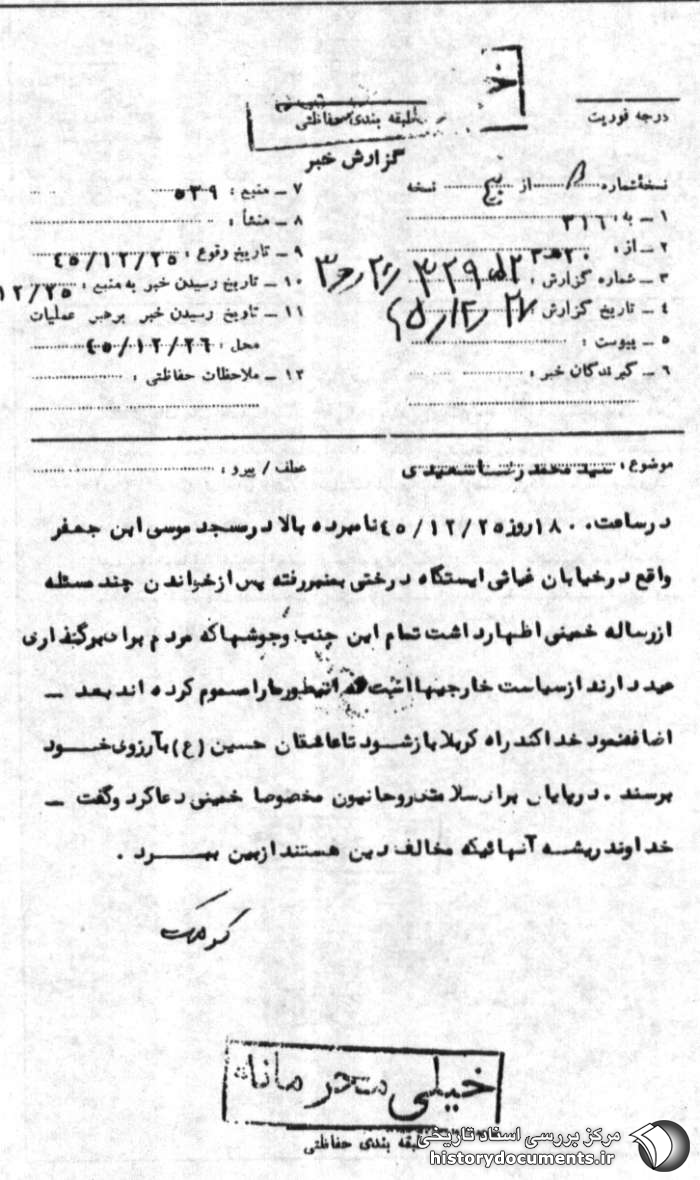 درجه فوریت
طبقه بندی حفاظتی
گزارش خبر
نسخهٔ شماره از نسخه
۱ ـ به: ۳۱۶
۲ ـ از: ۲۰ هـ ۳
۳ ـ شماره گزارش:
۴ ـ تاریخ گزارش: ۴۵/۱۲/۲۷
۵ ـ پیوست:
۶ ـ گیرندگان خبر:
۷ ـ منبع: ۵۳۹
۸ ـ منشأ:
۹ ـ تاریخ وقوع: ۴۵/۱۲/۲۵
۱۰ ـ تاریخ رسیدن خبر به منبع: ۱۲/۲۵
۱۱ ـ تاریخ رسیدن خبر برهبر عملیات
محل: ۴۵/۱۲/۲۶
۱۲ ـ ملاحظات حفاظتی:
موضوع: سید محمد رضا سعیدی
عطف / پیرو:
درساعت ۱۸۰۰ روز ۴۵/۱۲/۲۵ نامبرده بالا درمسجد موسی ابن جعفر
واقع درخیابان غیاثی ایستگاه درختی بمنبررفته پس ازخواندن چند مسئله
ازرساله خمینی اظهارداشت تمام این جنب وجوشها که مردم برای برگذاری
عید دارند ازسیاست خارجیها است که اینطورمارا مسموم کرده اند بعد ـ
اضافه نمود خدا کند راه کربلا باز شود تا عاشقان حسین (ع) بآرزوی خود
برسند . درپایان برای سلامتی روحانیون مخصوصا خمینی دعا کرد و گفت ـ
خداوند ریشه آنهائیکه مخالف دین هستند ازبین ببرد .
خیلی محرمانه
طبقه بندی حفاظتی
مرکز بررسی اسناد تاریخی
historydocuments.ir